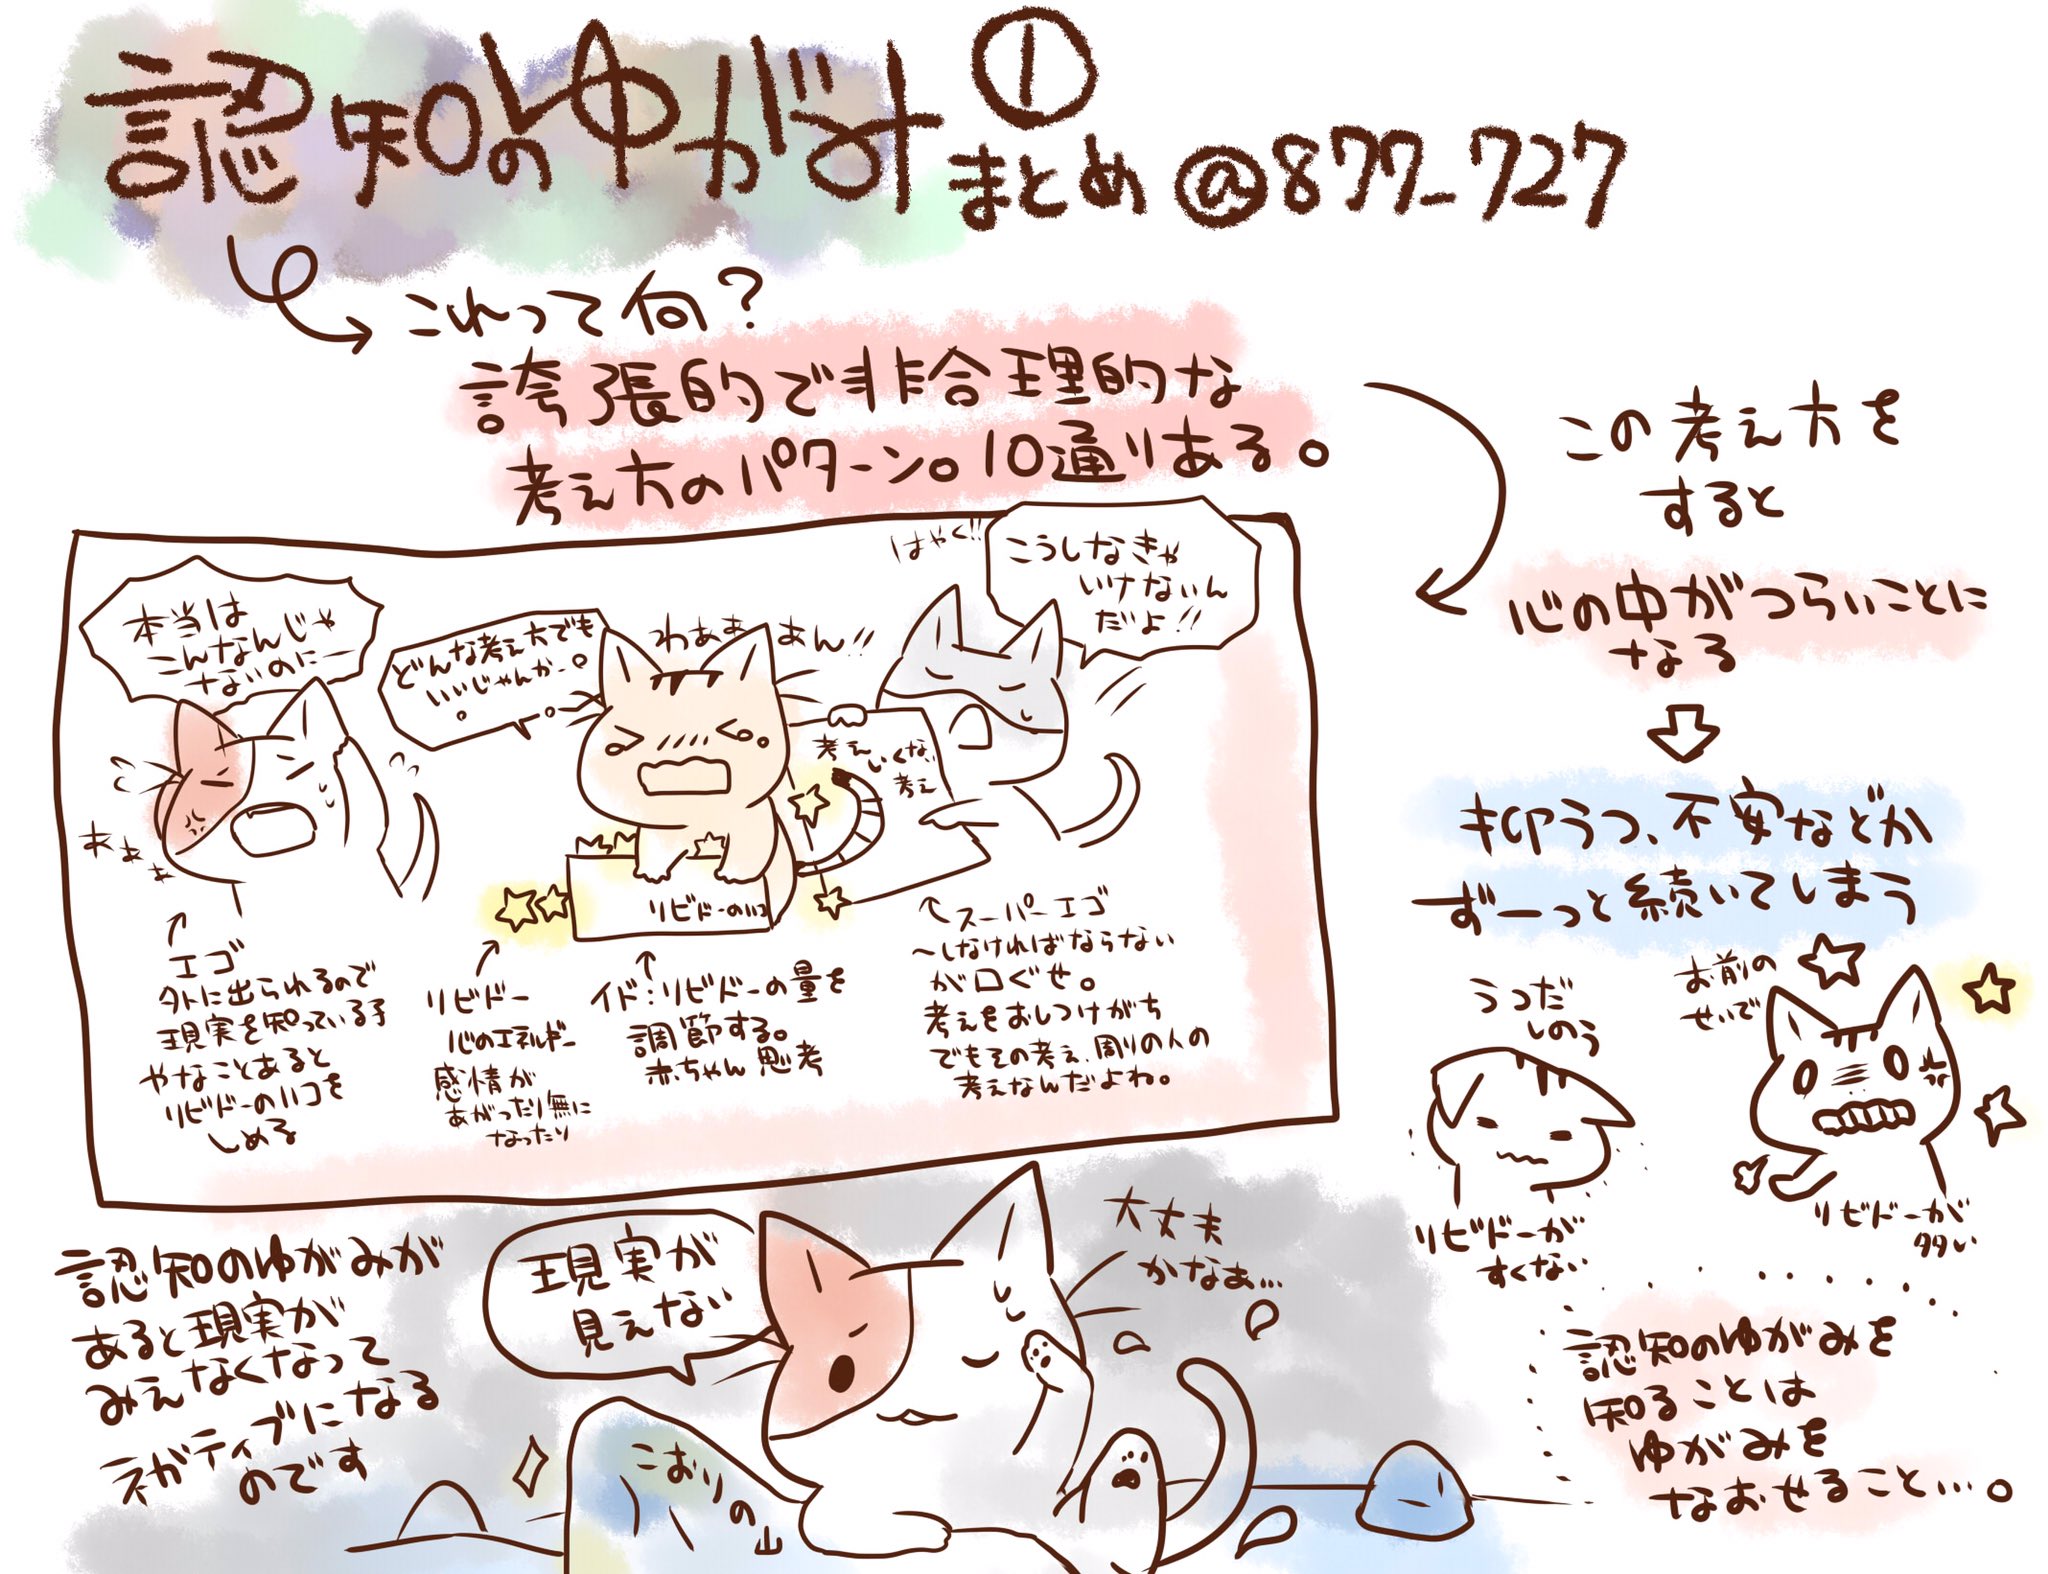 認知のゆがみ①
まとめ @877_727
これって何?
誇張的で非合理的な
考え方のパターン。10通りある。
この考え方を
すると
心の中がつらいことに
なる
抑うつ、不安などが
ずーっと続いてしまう
本当は
こんなんじゃ
ないのにー
ああぁ
どんな考え方でも
いいじゃんかー。
わあぁぁあん!!
はやく!!
こうしなきゃ
いけないん
だよ!!
考え
いくない
考え
リビドーのハコ
エゴ
外に出られるので
現実を知っている子
やなことあると
リビドーのハコを
しめる
リビドー
心のエネルギー
感情が
あがったり無に
なったり
イド:リビドーの量を
調節する。
赤ちゃん思考
スーパーエゴ
～しなければならない
が口ぐせ。
考えをおしつけがち
でもその考え、周りの人の
考えなんだよね。
うつだ
しのう
リビドーが
すくない
お前の
せいで
リビドーが
多い
認知のゆがみが
あると現実が
みえなくなって
ネガティブになる
のです
現実が
見えない
大丈夫
かなぁ…
こおりの山
認知のゆがみを
知ることは
ゆがみを
なおせること…。